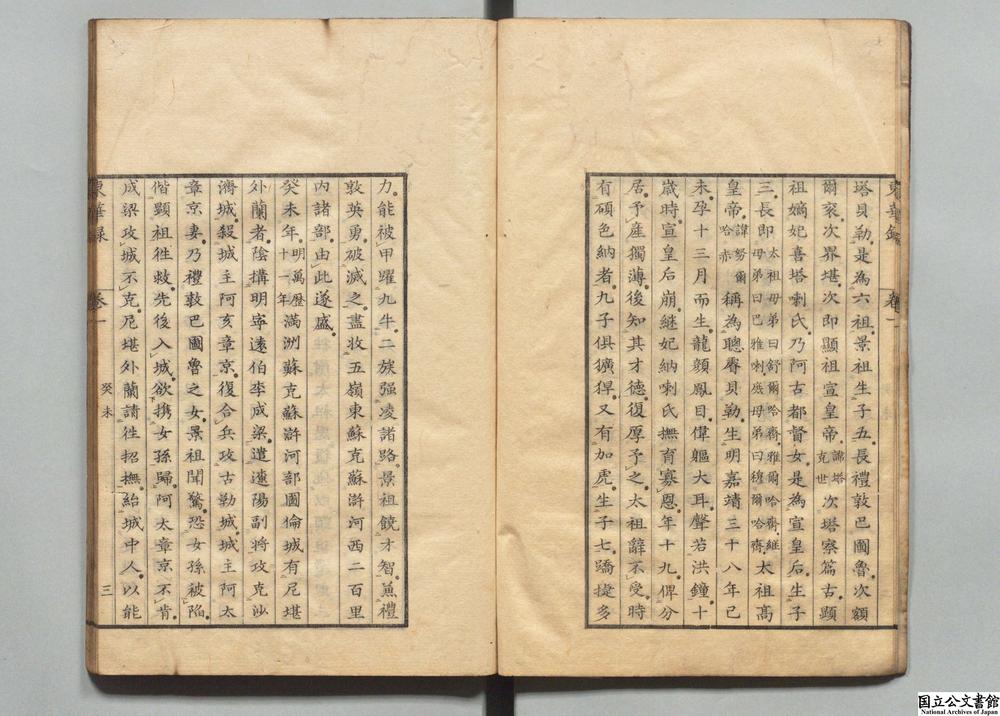 東華錄 卷一
塔貝勒是為六祖景祖生子五長禮敦巴圖魯次額
爾袞次界堪次即顯祖宣皇帝諱塔克世次塔察篇古顯
祖嫡妃喜塔喇氏乃阿古都督女是為宣皇后生子
三長即太祖母弟曰舒爾哈齊雅爾哈齊繼母弟曰巴雅喇庶母弟曰穆爾哈齊太祖高
皇帝諱努爾哈赤稱為聰睿貝勒生明嘉靖三十八年己
未孕十三月而生龍顏鳳目偉軀大耳聲若洪鐘十
歲時宣皇后崩繼妃納喇氏撫育寡恩年十九俾分
居予產獨薄後知其才德復厚予之太祖辭不受時
有碩色納者九子俱獷猂又有加虎生子七驕捷多
力能被甲躍九牛二族强凌諸路景祖饒才智兼禮
敦英勇破滅之盡收五嶺東蘇克蘇滸河西二百里
內諸部由此遂盛
癸未年明萬歷十一年滿洲蘇克蘇滸河部圖倫城有尼堪
外蘭者陰搆明寧遠伯李成梁遣遼陽副將攻克沙
濟城殺城主阿亥章京復合兵攻古勒城城主阿太
章京妻乃禮敦巴圖魯之女景祖聞驚恐女孫被陷
偕顯祖徃救先後入城欲携女孫歸阿太章京不肯
成梁攻城不克尼堪外蘭請徃招撫紿城中人以能
東華録 卷一 癸未 三
国立公文書館
National Archives of Japan